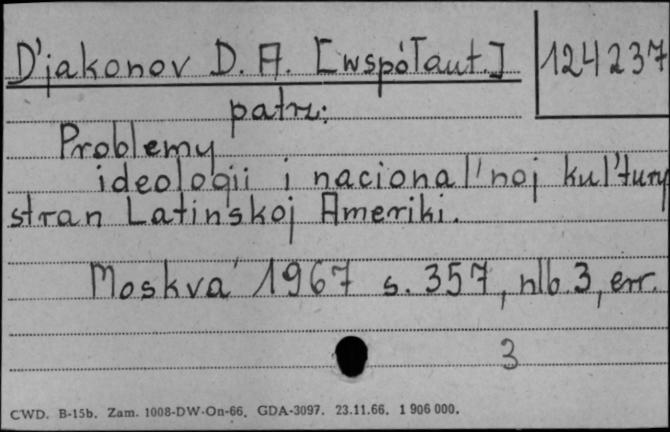 D'jakonov D. A. [współaut.]
124237
patrz:
Problemy
ideologii i nacional'noj kul'tury
stran Latinskoj Ameriki.
Moskva 1967 s. 357, nlb. 3, err.
3
CWD. B-15b. Zam. 1008-DW-On-66. GDA-3097. 23.11.66. 1 906 000.